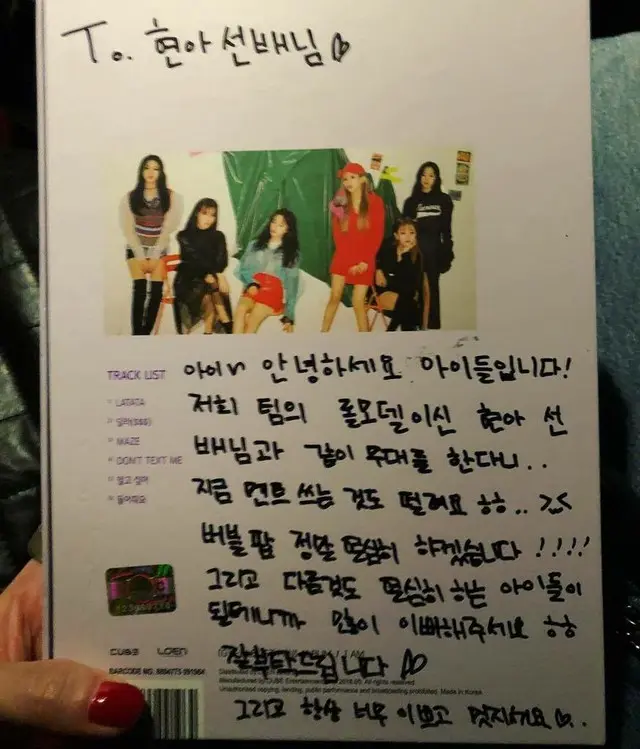 To. 현아선배님♡
TRACK LIST
LATATA
달라($$$)
MAZE
DON'T TEXT ME
알고 싶어
들어줘요
아이 안녕하세요 아이들입니다!
저희 팀의 롤모델이신 현아 선
배님과 같이 무대를 한다니..
지금 멘트 쓰는 것도 떨려요 ㅎㅎ.. >_<
버블팝 정말 열심히 하겠습니다!!!!
그리고 다른것도 열심히 하는 아이들이
될테니까 많이 이뻐해주세요 ㅎㅎ
잘부탁드립니다♡
그리고 항상 너무 이쁘고 멋지세요♡.
CUBE LOEN
/ I AM
Manufactured by CUBE Entertainment
Unauthorized copying, lending, public performance and broadcasting prohibited. Made in Korea
BARCODE NO. 8804775 091964